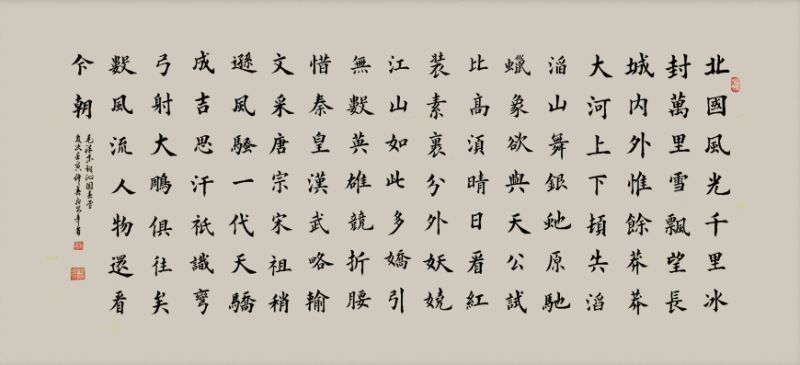 北國風光千里冰
封萬里雪飄望長
城内外惟餘莽莽
大河上下頓失滔
滔山舞銀虵原馳
蠟象欲與天公試
比高須晴日看紅
裝素裹分外妖嬈
江山如此多嬌引
無數英雄競折腰
惜秦皇漢武略輸
文采唐宗宋祖稍
遜風騷一代天驕
成吉思汗祇識彎
弓射大鵬俱往矣
數風流人物還看
今朝
毛澤東詞沁園春雪
歲次壬寅仲夏